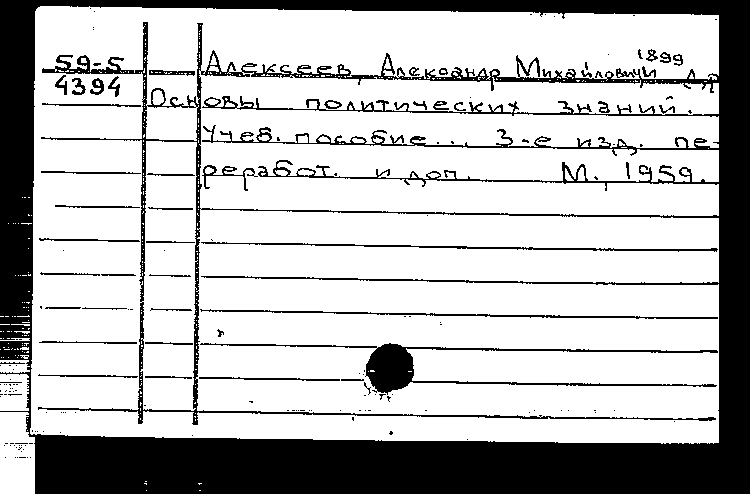 59-5
4394
1899
Алексеев, Александр Михайлович
Основы политических знаний.
Учеб. пособие... 3-е изд. пе-
реработ. и доп. М., 1959.